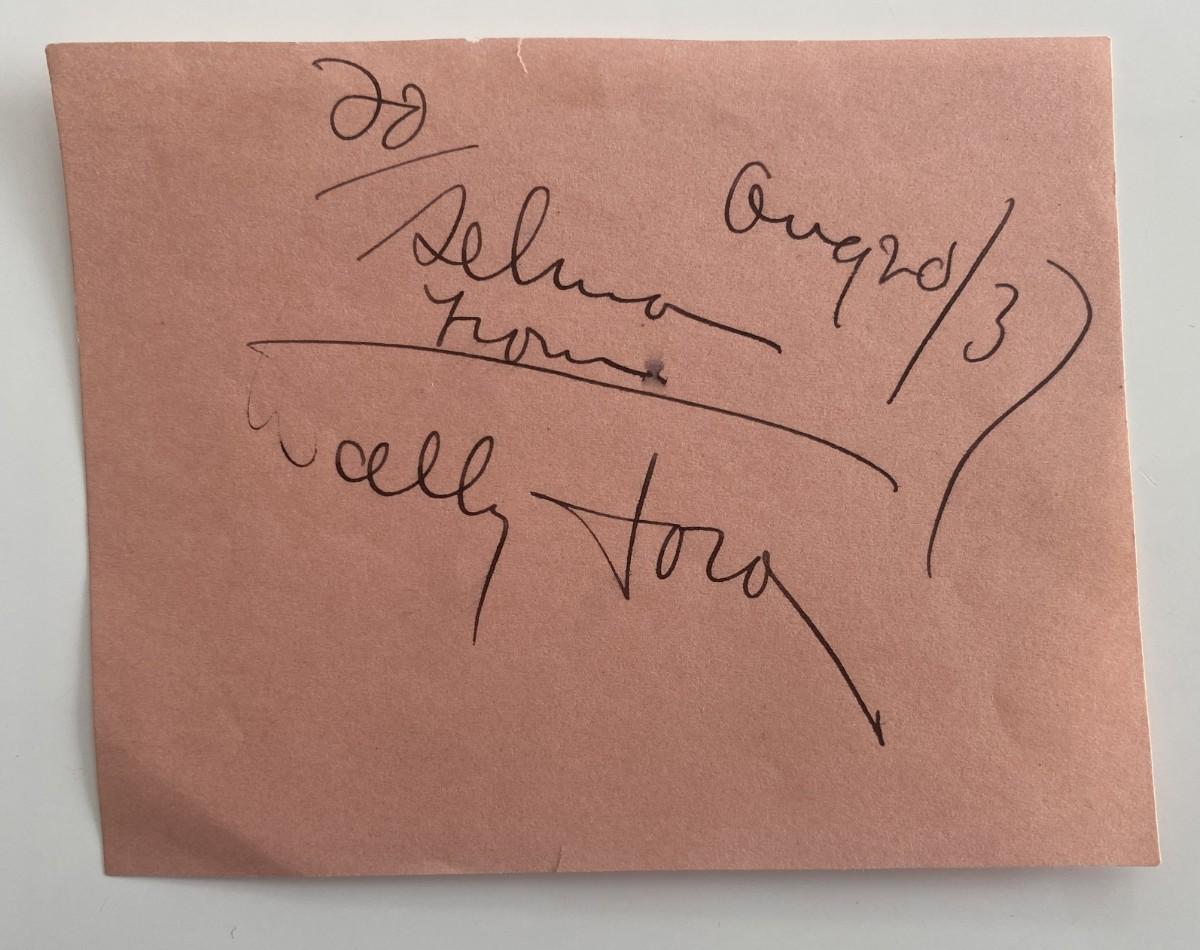 To
Selma
From
Wally Ford
Aug 28/37